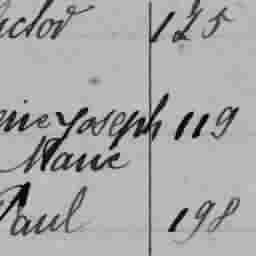 ictor 125
erie Joseph 119
Marie
Paul 198